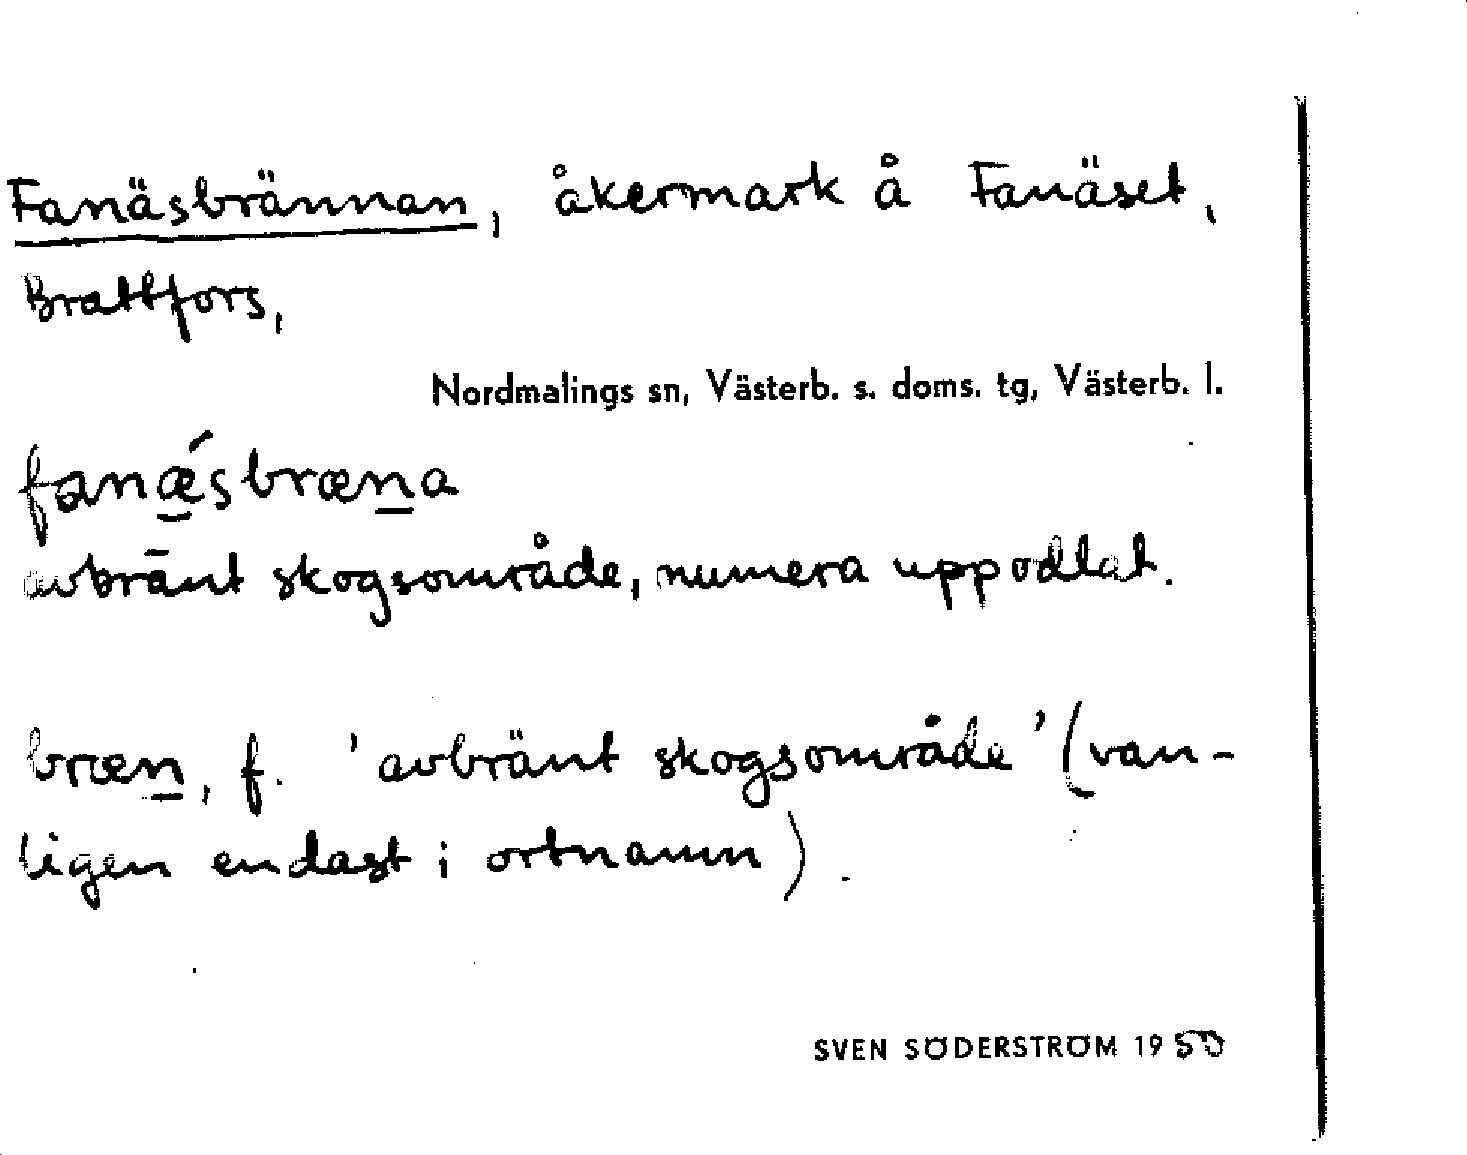 Fanäsbrännan, åkermark å Fanäset,
Brattfors,
Nordmalings sn, Västerb. s. doms. tg, Västerb. l.
fanǽ̲sbræn̲a
avbränt skogsområde, numera uppodlat.
bræn̲, f. 'avbränt skogsområde' (van-
ligen endast i ortnamn).
SVEN SÖDERSTRÖM 1950